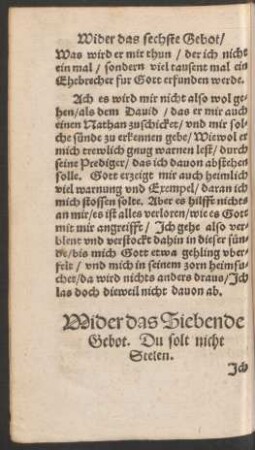 Wider das sechste Gebot/
Was wird er mit thun / der ich nicht
ein mal / sondern viel tausent mal ein
Ehebrecher fur Gott erfunden werde.
Ach es wird mir nicht also wol ge-
hen/als dem Dauid / das er mir auch
einen Nathan zuschicket/ vnd mir sol-
che sünde zu erkennen gebe/ Wiewol er
mich trewlich gnug warnen lest/ durch
seine Prediger/ das ich dauon abstehen
solle. Gott erzeigt mir auch heimlich
viel warnung vnd Exempel/ daran ich
mich stossen solte. Aber es hilfft nichtes
an mir/ es ist alles verloren/ wie es Gott
mit mir angreifft/ Ich gehe also ver-
blent vnd verstockt dahin in dieser sün-
de/ bis mich Gott etwa gehling vber-
felt / vnd mich in seinem zorn heimsu-
chet/ da wird nichts anders draus/ Ich
las doch dieweil nicht dauon ab.
Wider das Siebende
Gebot. Du solt nicht
Stelen.
Ich